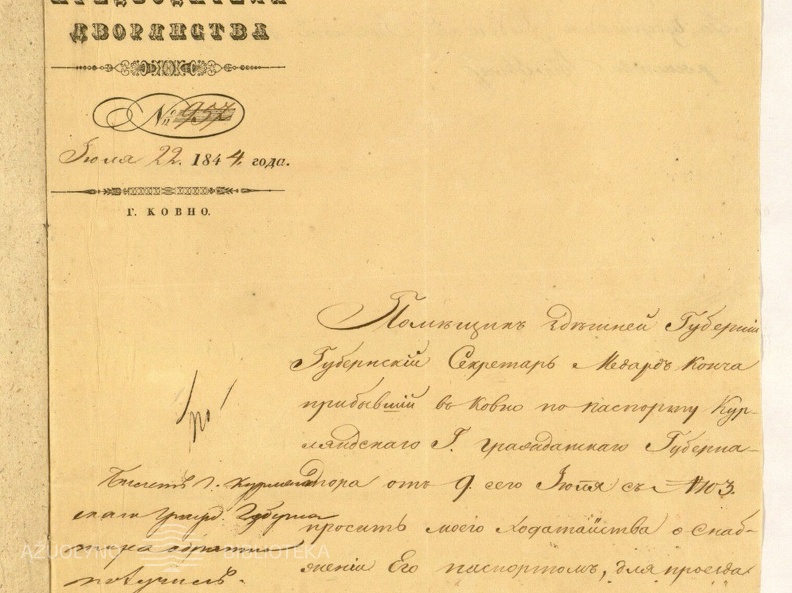 ДВОРЯНСТВА
№ 957
Іюля 22. 1844 года.
Г. КОВНО.
Помѣщикъ здѣшней Губерніи
Губернскій Секретарь Медардъ Конча
прибывшій въ Ковно по паспорту Кур-
ляндскаго Г. Гражданскаго Губерна-
тора отъ 9. сего Іюля съ №103.
проситъ моего ходатайства о снаб-
женіи Его паспортомъ, для проезда
Билетъ Г. Курлянд
скаго Гражд. Губерна
тора обратно
получилъ.
AZUOLYNO BIBLIOTEKA